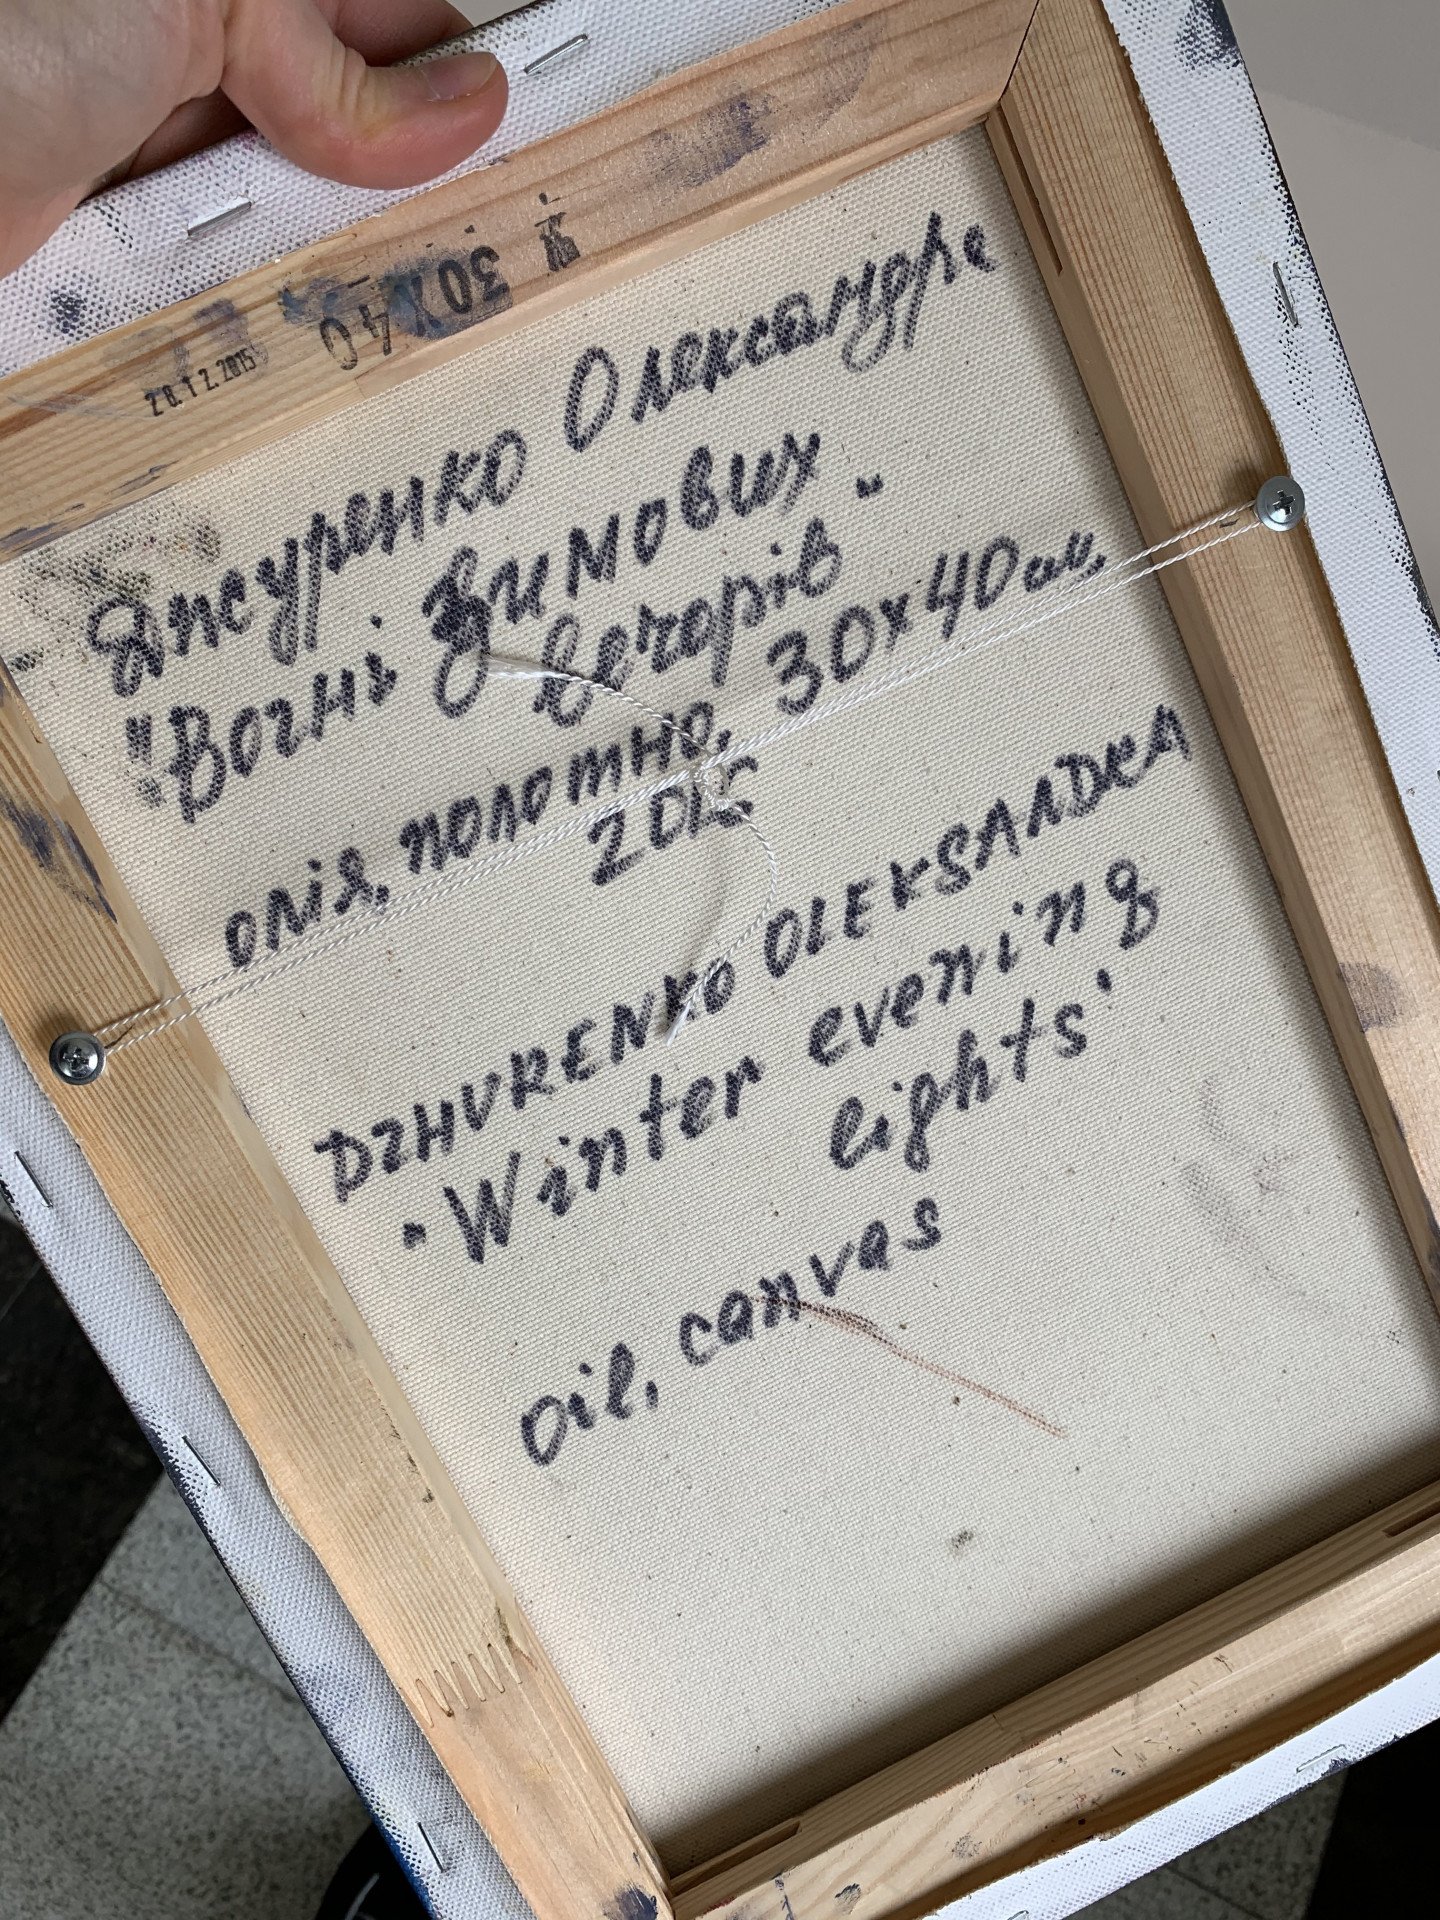 30X40
28.12.2015
Джуренко Олександра
"Вогні зимових
вечорів"
олія, полотно, 30х40 см,
2016
DZHURENKO OLEKSANDRA
"Winter evening
lights"
Oil, canvas